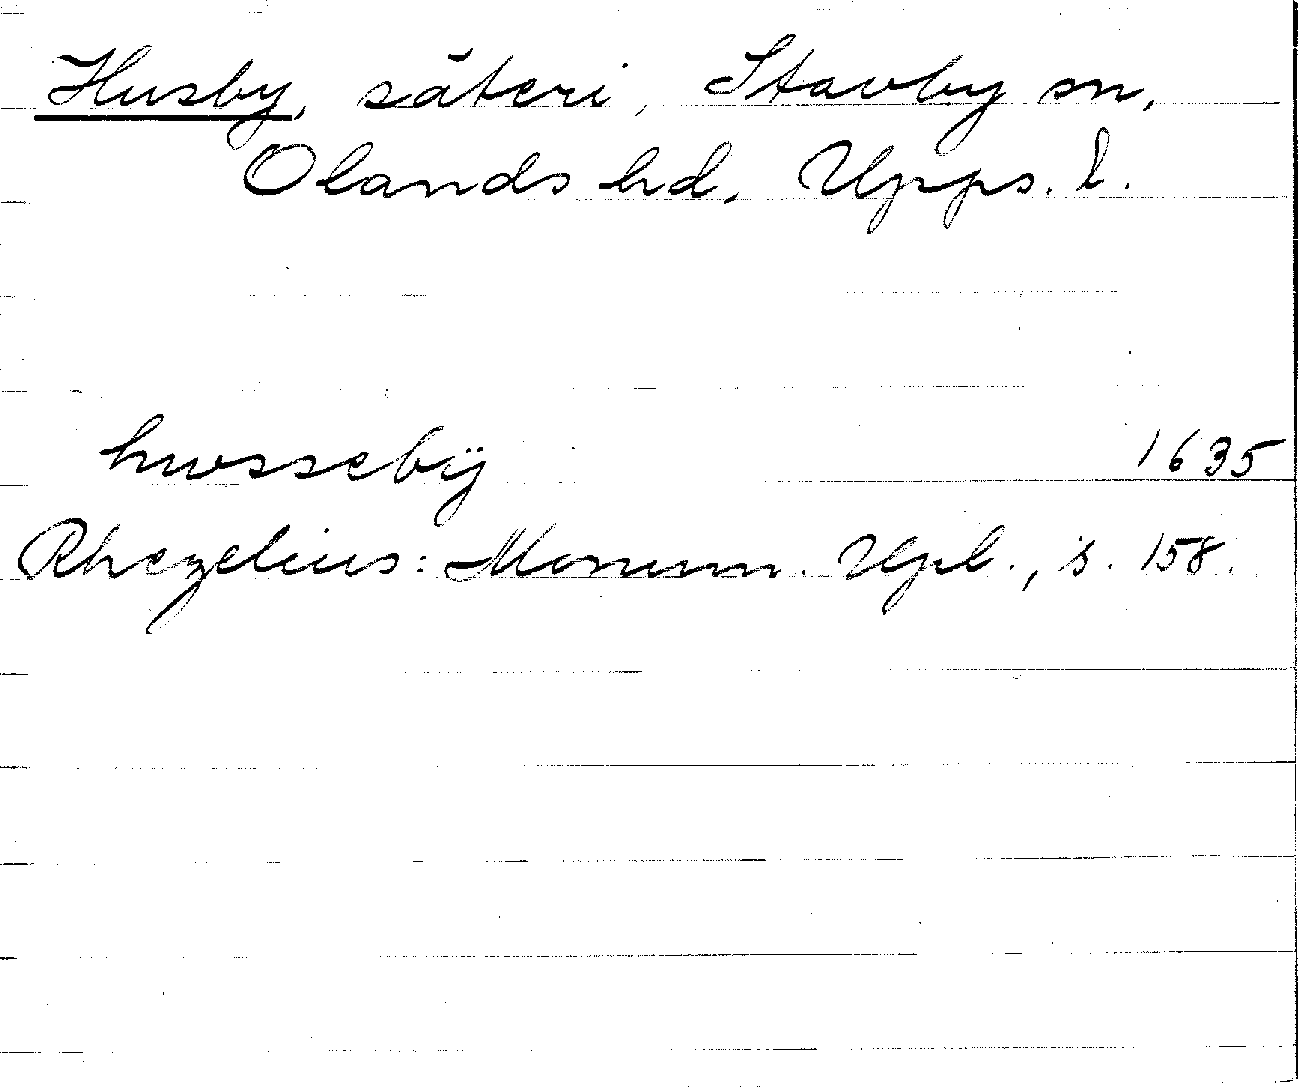 Husby, säteri, Stavby sn,
Olands hd, Upps. l.
hwssebÿ 1635
Rhezelius: Monum. Upl., s. 158.